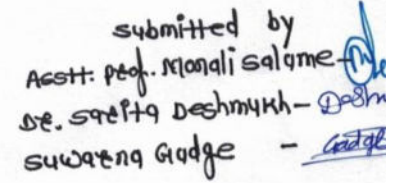 submitted by
Asstt: prof. Monali Salame -
Dr. Sarita Deshmukh - Desh
Suwarna Gadge - Gadge